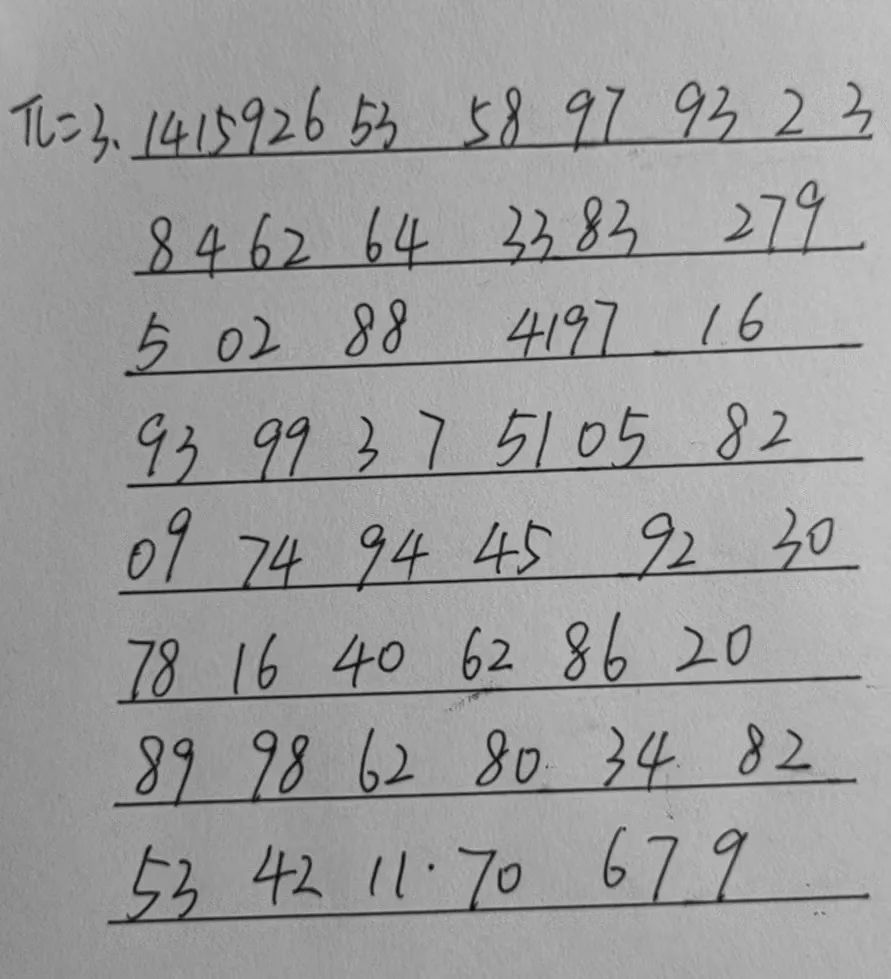 π=3.1415926 53 58 97 93 2 3
84 62 64 33 83 279
5 02 88 4197 16
93 99 3 7 51 05 82
09 74 94 45 92 30
78 16 40 62 86 20
89 98 62 80 34 82
53 42 11·70 679